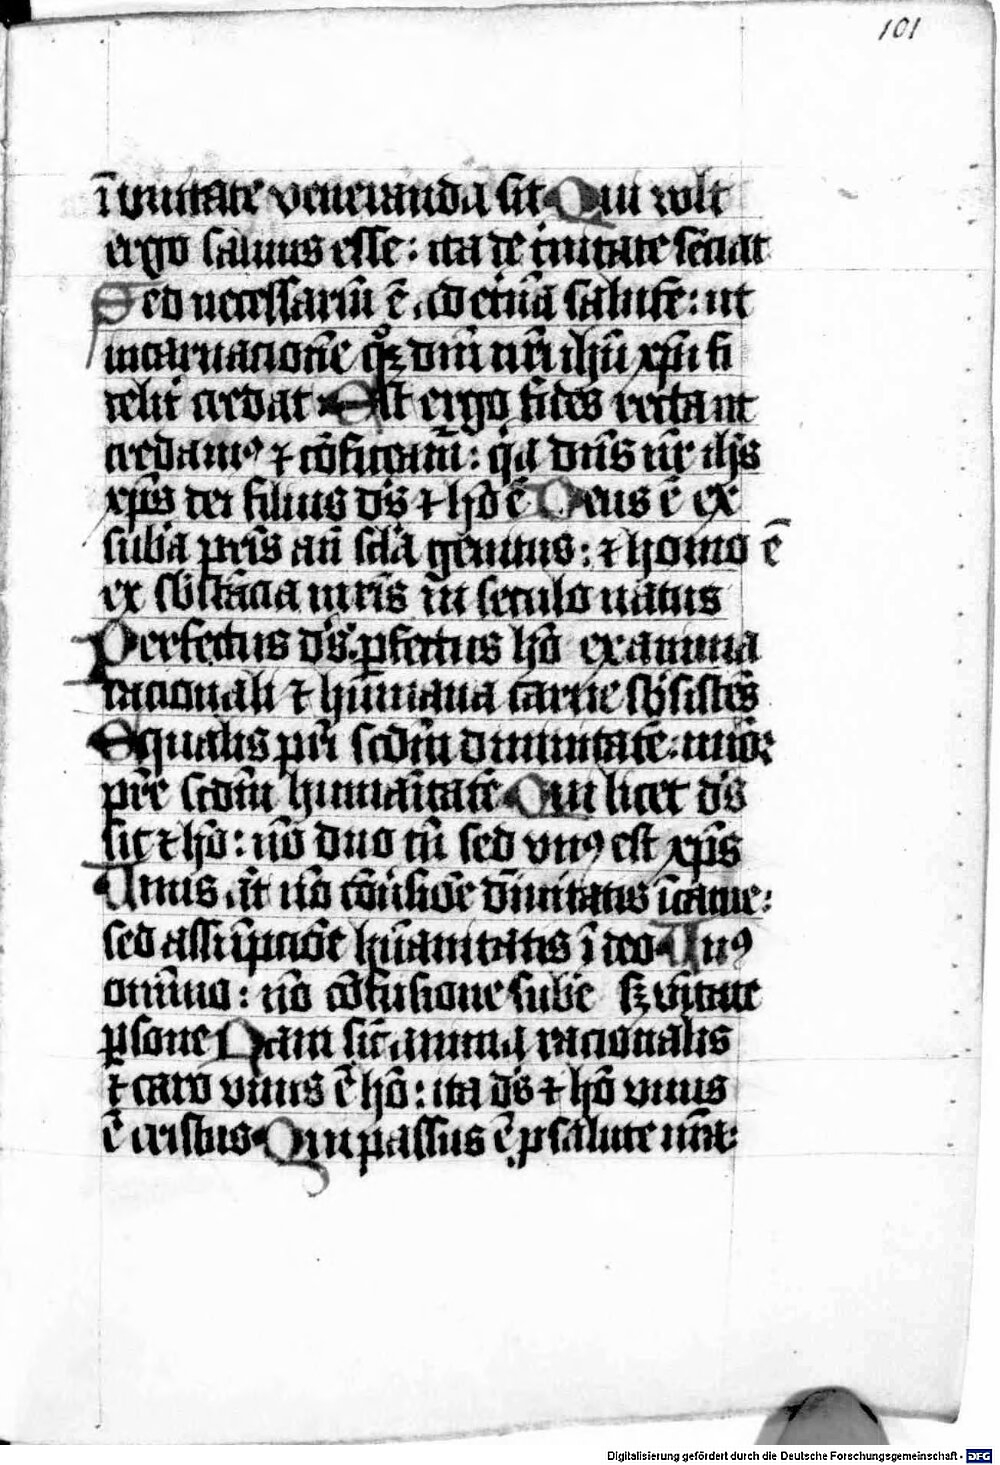 101
ī vnitate veneranda sit Qui vult
ergo saluus esse: ita de t'nitate sēciat
Sed necessariū ē ad et'nā salutē: ut
incarnacionē qͦꝫ dn̄i nr̄i ihū xp̄i fi
delit' credat Est ergo fides recta ut
credamꝰ ⁊ cōfiteam̄: q'a dn̄s nr̄ ihs̄
xp̄s dei filius ds̄ ⁊ hō ē Deus ē ex
sub'a pr̄is an̄ sc̄l'a genitus: ⁊ homo ē
ex sb'stācia mr̄is in seculo natus
Perfectus ds̄ ꝑfectus hō ex anima
racionali ⁊ humana carne sb'sistēs
Equalis pr̄i scdm̄ diuinitatē: minor
pr̄e scdm̄ humanitatē Qui licet ds̄
sit ⁊ hō: nō duo tn̄ sed vnꝰ est xp̄s
Unus aūt nō cōu'sione diuinitatis ī carne:
sed assūpcione hūanitatis ī deo Unꝰ
omnino: nō cōfusione sub'e sꝫ vnitate
ꝑsone Nam sic̄ anima racionalis
⁊ caro vnus ē hō: ita ds̄ ⁊ hō vnus
ē cristus Qui passus ē ꝓ salute nr̄a:
Digitalisierung gefördert durch die Deutsche Forschungsgemeinschaft - DFG